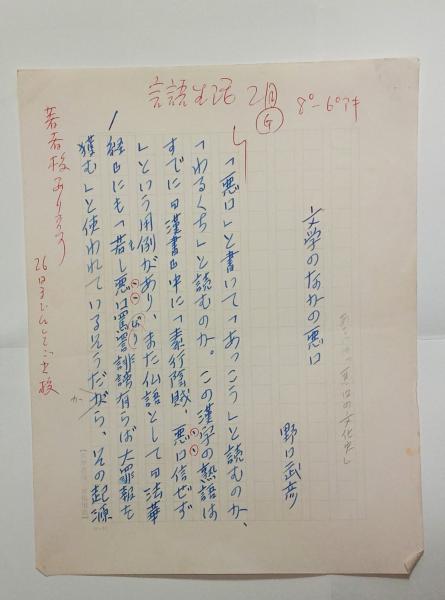 言語生活 2月
G
8º-6º アキ
文学のなかの悪口
野口武彦
「悪口」と書いて「あっこう」と読むのか、
「わるくち」と読むのか。この漢字の熟語は
すでに『漢書』中に「素行陰賊、悪口信ぜず
」という用例があり、また仏語として『法華
経』にも「若し悪口罵詈誹謗有らば大罪報を
獲む」と使われているそうだから、その起源
か
著者校あります
26日まで